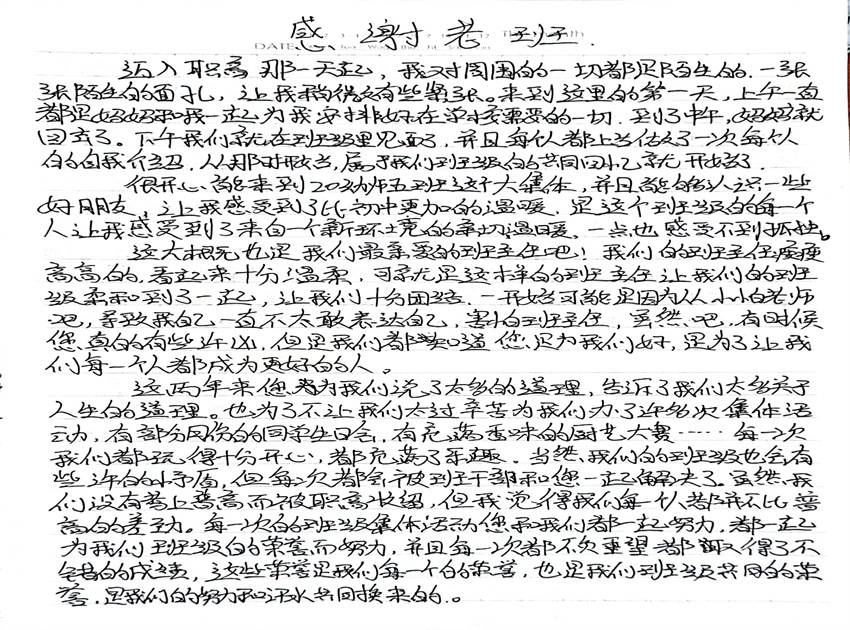 感谢老班
DATE
迈入职高那一天起，我对周围的一切都是陌生的.一张
张陌生的面孔，让我稍微有些紧张。来到这里的第一天，上午一直
都是妈妈和我一起为我安排好在学校需要的一切.到了中午，妈妈就
回去了。下午我们就在到班级里见面了，并且每个人都上台做了一次每个人
的自我介绍.从那时候当，属于我们班级的共同回忆就开始了.
很开心能来到20动师五班这个大集体，并且能够认识一些
好朋友，让我感受到了比初中更加的温暖.是这个班级的每一个
人让我感受到了来自一个新环境的亲切温暖.一点也感受不到孤独。
这大概也是我们最亲爱的班主任吧！我们的班主任瘦瘦
高高的.看起来十分温柔，可就是这样的班主任让我们的班
级柔和到了一起，让我们十分团结.一开始可能是因为从小怕老师
吧，导致我自己一直不太敢表达自己，害怕班主任，虽然吧，有时候
您真的有些许凶，但是我们都知道您是为我们好，是为了让我
们每一个人都成为更好的人。
这两年来您为我们说了太多的道理，告诉了我们太多关于
人生的道理。也为了不让我们太过辛苦为我们办了许多次集体活
动，有部分月份的同学生日会，有充满香味的厨艺大赛……每一次
我们都玩得十分开心，都充满了乐趣.当然，我们的班级也会有
些许的小矛盾，但每次都会被班干部和您一起解决了。虽然我
们没有考上普高而被职高收留，但我觉得我们每个人都并不比普
高的差劲。每一次的班级集体活动您和我们都一起努力，都一起
为我们班级的荣誉而努力，并且每一次都不负重望都取得了不
错的成绩，这些荣誉是我们每一个的荣誉，也是我们班级共同的荣
誉.是我们的努力和汗水共同换来的。